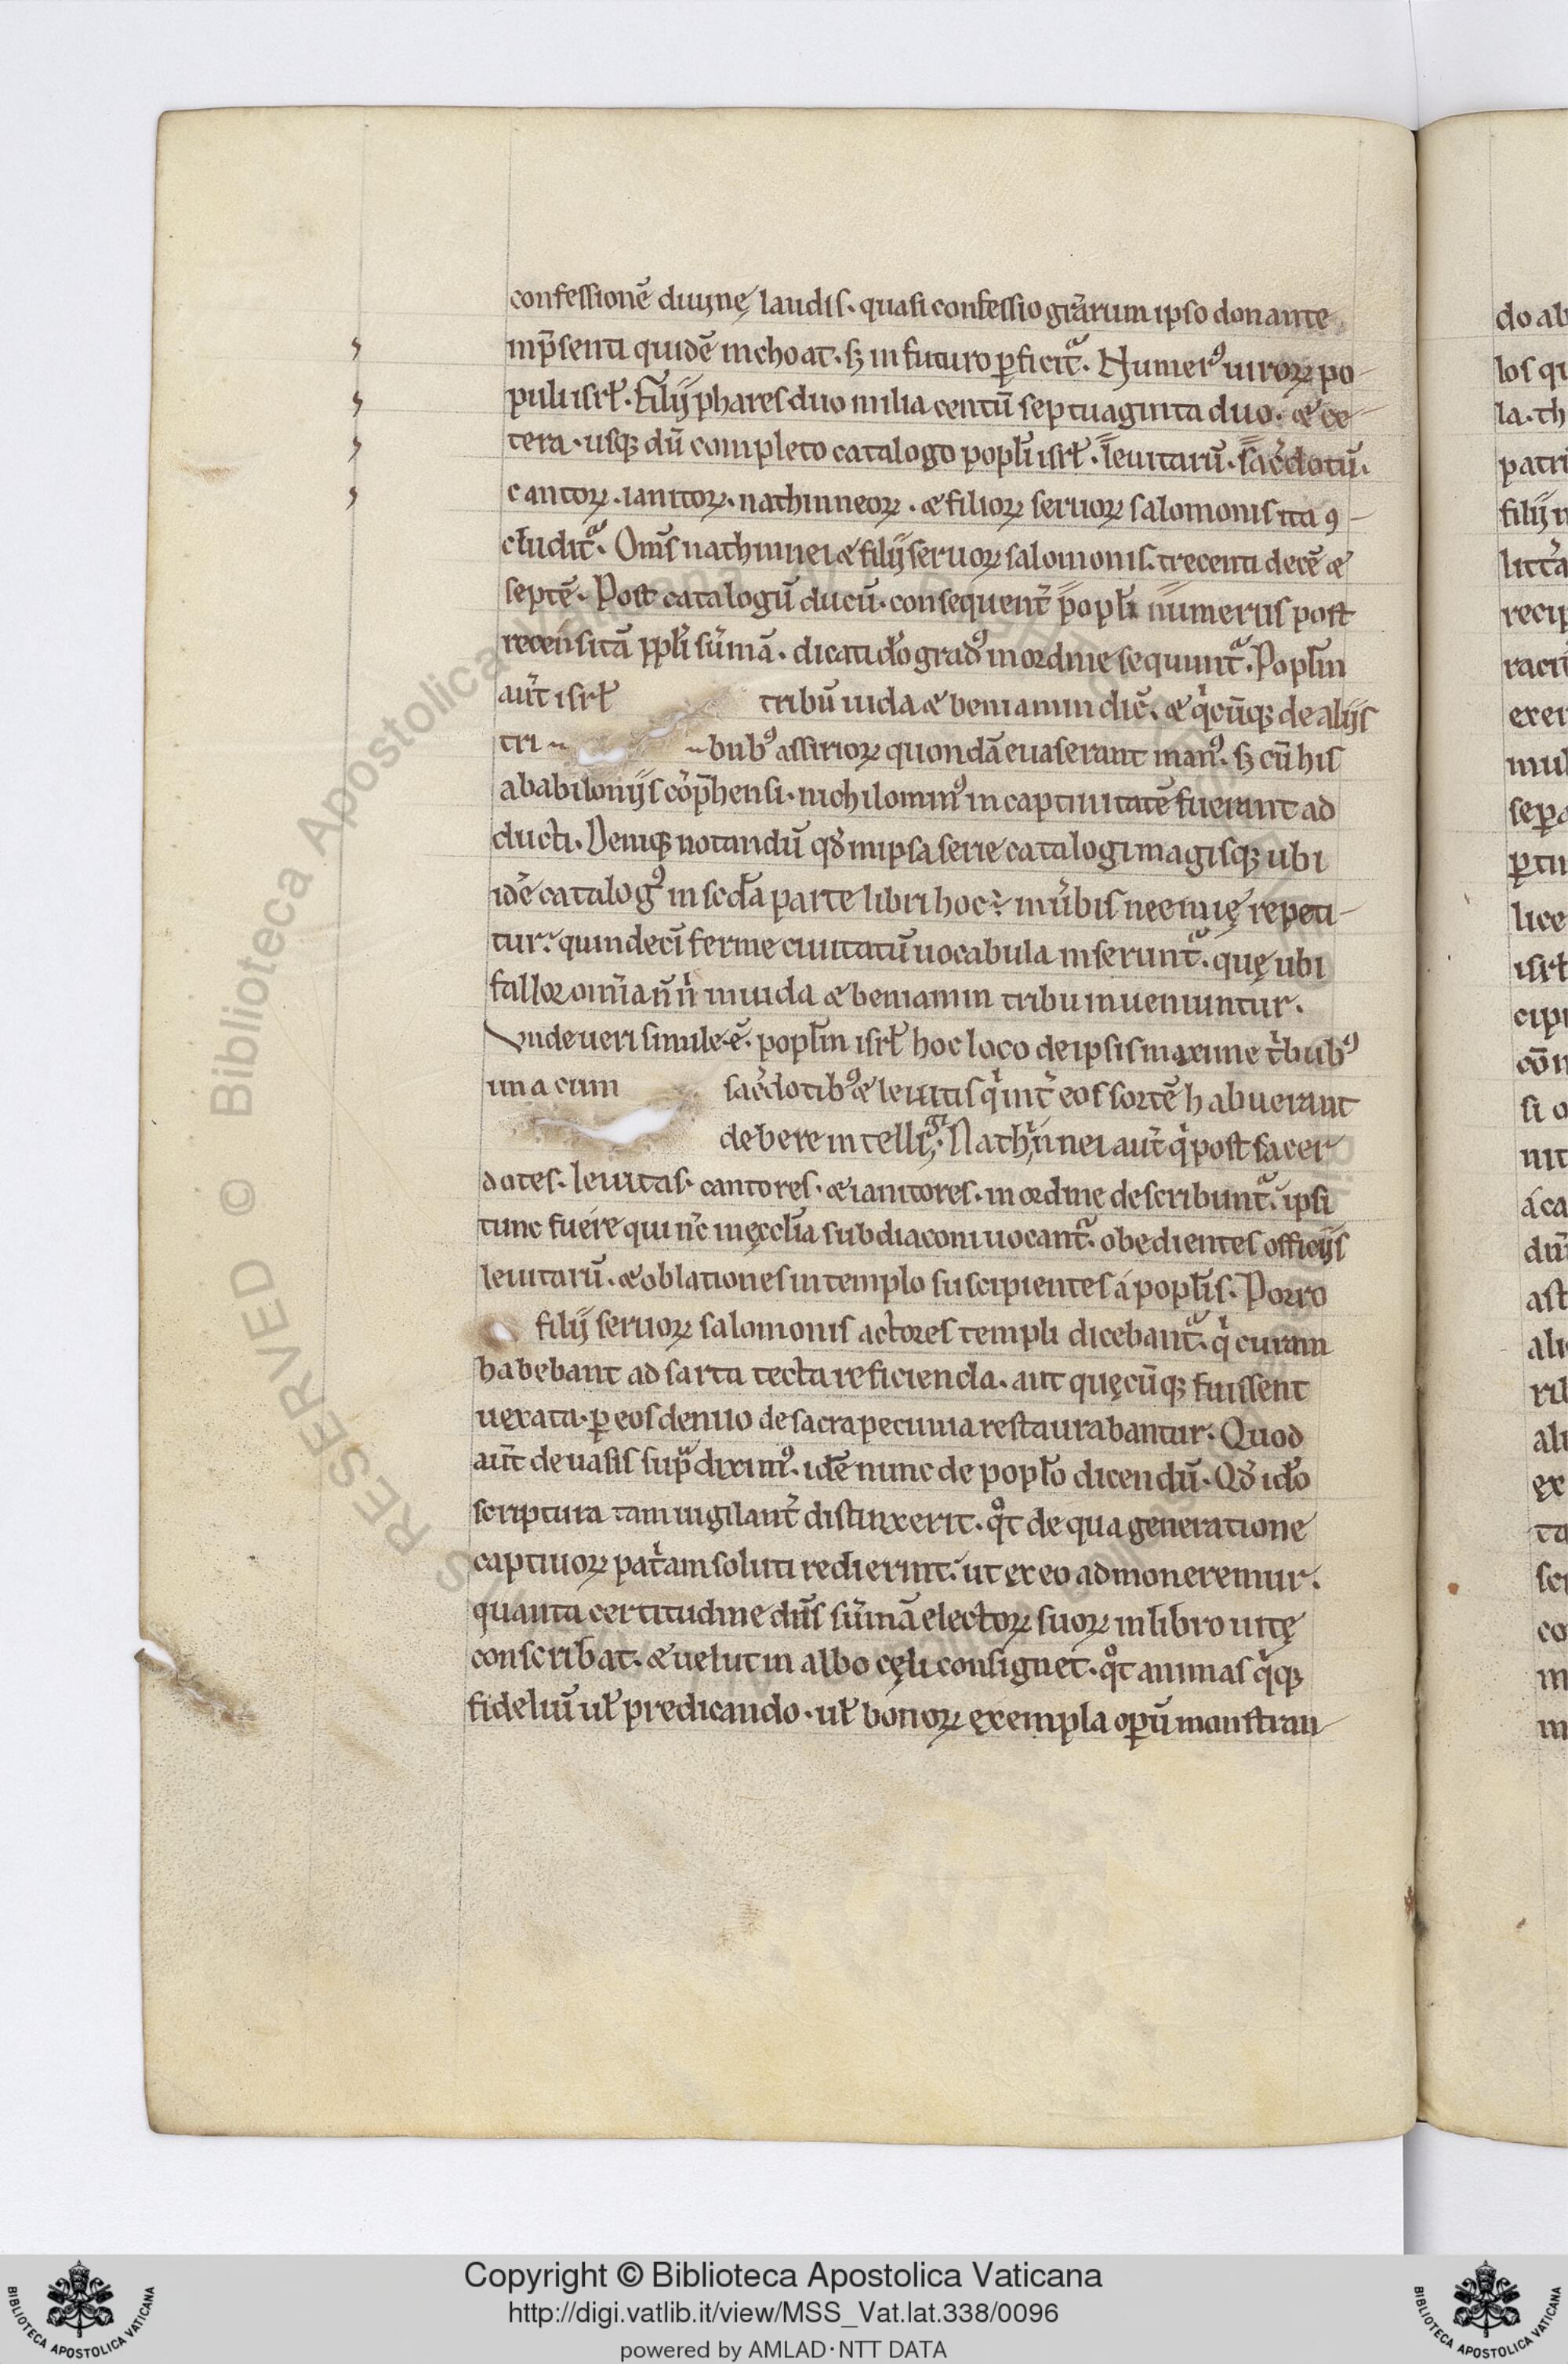 confessionē diuinę laudis. quasi confessio gr̄arum ipso donante
inp̄senti quidē inchoat. sꝫ in futuro ꝑficit᷑. Numerꝰ uiroꝝ po-
puli isrł. Filij phares duo milia centū septuaginta duo. æ ce-
tera. usqꝫ dū completo catalogo popłi isrł. leuitarū. sac̄dotū.
cantoꝝ. ianitoꝝ. nathinneoꝝ. æ filioꝝ seruoꝝ salomonis ita ꝯ-
cłudit᷑. Om̄s nathinnei æ filij seruoꝝ salomonis. trecenti decē æ
septē. Post catalogū ducū. consequent̄ popłi numerus post
recensitā ppłi sūmā. dicati dō gradꝰ in ordine sequunt᷑. Popłm
aut̄ isrł tribū iuda æ beniamin dic̄. æ qͥcūqꝫ de alijs
tri- -bubꝰ assirioꝝ quondā euaserant manꝰ. sꝫ cū his
ababilonijs cōp̄hensi. nichilominꝰ in captiuitatē fuerant ad
ducti. Deniqꝫ notandū qđ in ipsa serie catalogi magisqꝫ ubi
idē catalogꝰ in scđa parte libri hoc ÷ in ūbis neemię repeti-
tur. quindecī ferme ciuitatū uocabula inserunt᷑. quę ubi
fallor omīa ñ nͥ in iuda æ beniamin tribu inueniuntur.
Vnde ueri simile ē. popłm isrł hoc loco de ipsis maxime tͥbubꝰ
una cum sac̄dotibꝰ æ leuitis qͥ int̄ eos sortē habuerant
debere intelligi. Nathinnei aut̄ qͥ post sacer
dotes. leuitas. cantores. æ ianitores. in ordine describunt᷑. ipsi
tunc fuére qui nc̄ inęccłia subdiaconi uocant᷑. obedientes officijs
leuitarū. æ oblationes in templo suscipientes á popłis. Porro
filij seruoꝝ salomonis actores templi dicebant᷑. qͥ curam
habebant ad sarta tecta reficienda. aut quęcūqꝫ fuissent
uęxata. ꝑ eos denuo de sacra pecunia restaurabantur. Quod
aut̄ de uasis sup̄ diximꝰ. idē nunc de popło dicendū. Qđ idō
scriptura tam uigilant̄ distinxerit. qͦt de qua generatione
captiuoꝝ patͥam soluti redierint. ut ex eo admoneremur.
quanta certitudine dn̄s sūmā electoꝝ suoꝝ in libro uitę
conscribat. æ uelut in albo cęli consignet. qͦt animas qͥqꝫ
fideliū uł predicando. uł bonoꝝ exempla oꝑū monstran-
do ab
los qu
la. th
patri
filij n
litt̄a
recip
exer
mul
sepa
ꝑtin
lice
isrł
cipi
si o
nit
á ca
dū
ast
ali
rib
ex
Copyright © Biblioteca Apostolica Vaticana
http://digi.vatlib.it/view/MSS_Vat.lat.338/0096
powered by AMLAD·NTT DATA
BIBLIOTECA APOSTOLICA VATICANA
BIBLIOTECA APOSTOLICA VATICANA